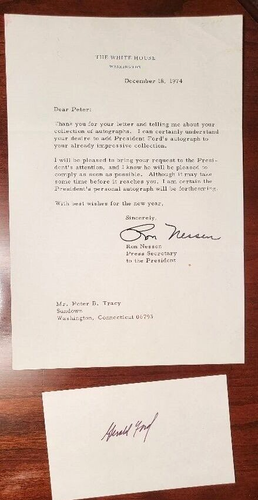 THE WHITE HOUSE
WASHINGTON
December 18, 1974
Dear Peter:
Thank you for your letter and telling me about your
collection of autographs. I can certainly understand
your desire to add President Ford's autograph to
your already impressive collection.
I will be pleased to bring your request to the Presi-
dent's attention, and I know he will be pleased to
comply as soon as possible. Although it may take
some time before it reaches you, I am certain the
President's personal autograph will be forthcoming.
With best wishes for the new year,
Sincerely,
Ron Nessen
Ron Nessen
Press Secretary
to the President
Mr. Peter D. Tracy
Sundown
Washington, Connecticut 06793
Gerald Ford